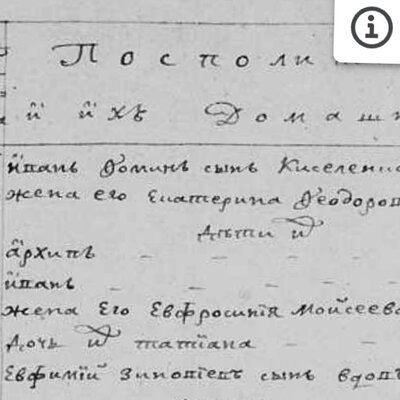 Посполи
и ихъ Домаш
Иванъ Фоминъ сынъ Киселенко
жена его Екатерина Федоро
дѣти их
Архипъ
Иванъ
жена Его Евфросинїя Моисеева
Дочь их татїана
Евфимїй Зиновїевъ сынъ вдов